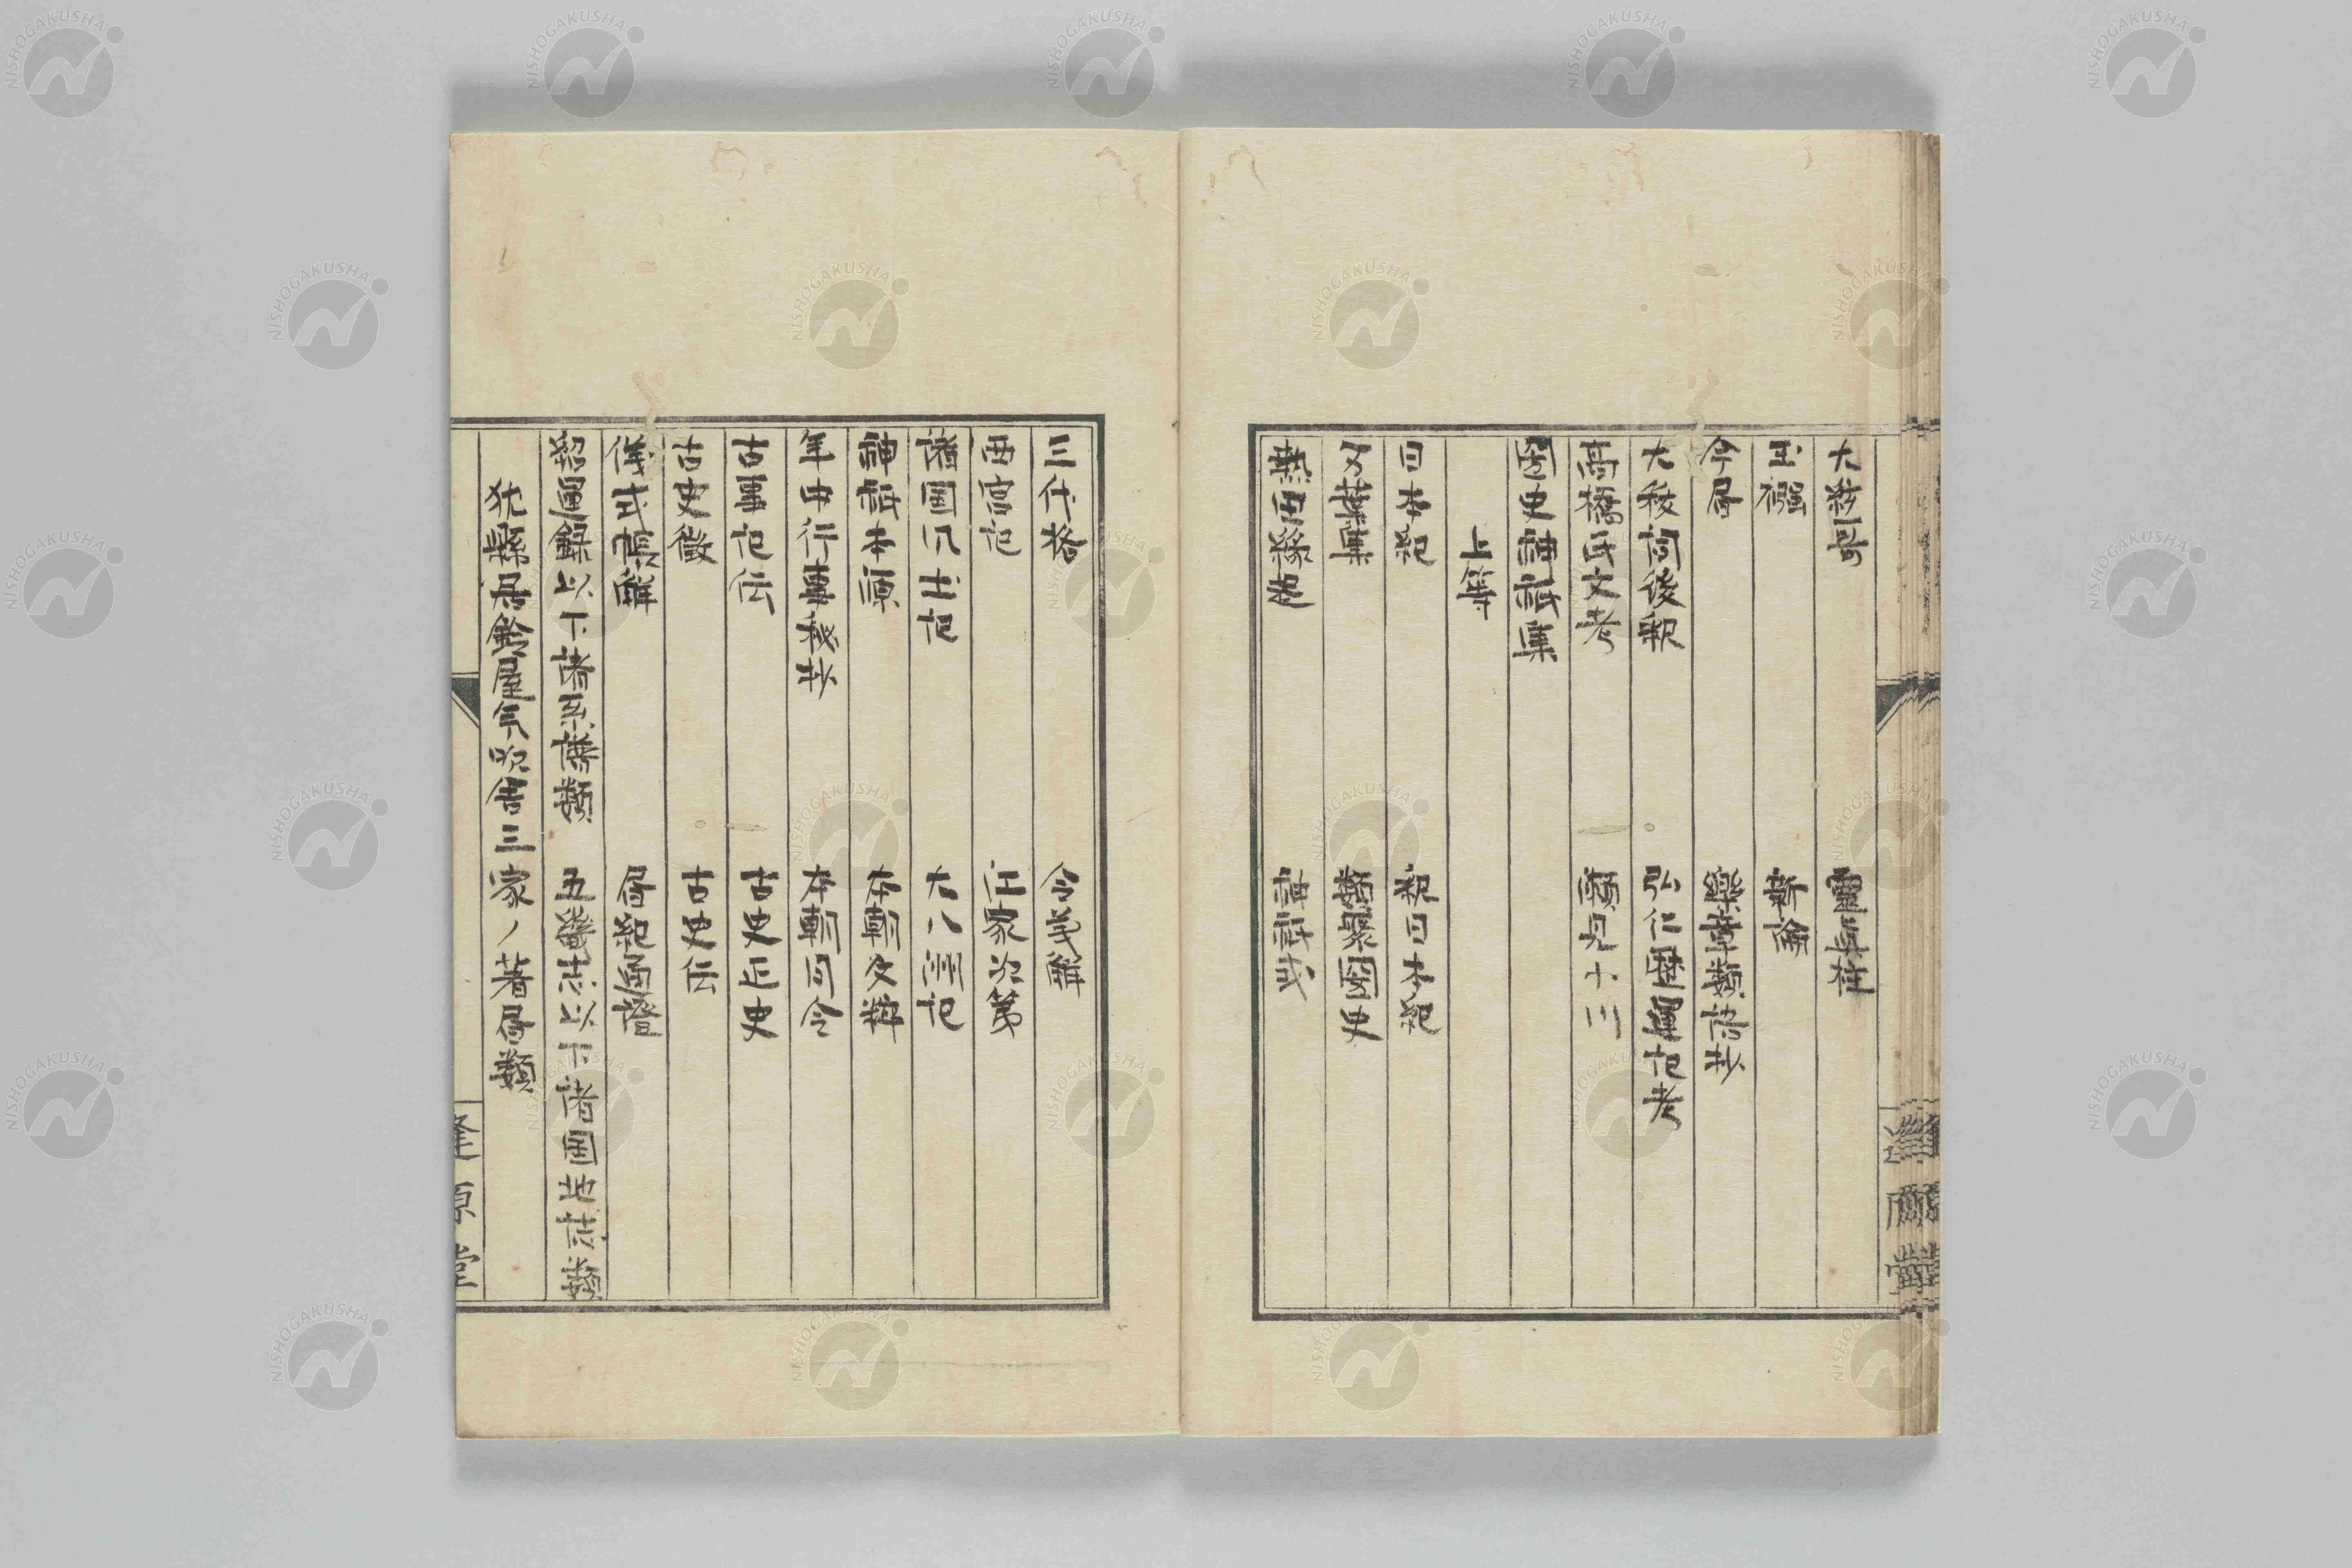 大祓哥　靈眞柱
玉襁　新論
今書　樂章類語抄
大祓詞後釈　弘仁歴運記考
高橋氏文考　瀬見小川
國史神祇集
上等
日本紀　釈日本紀
万葉集　類聚國史
熱田縁起　神祇式
三代格　令義解
西宮記　江家次第
諸国風土記　大八洲記
神祇本源　本朝文粹
年中行事秘抄　本朝月令
古事記伝　古史正史
古史徴　古史伝
儀式帳解　書紀通證
紹運録以下諸系譜類　五畿志以下諸国地誌類
犹縣居鈴屋気吹舎三家ノ著書類
逢原堂
NISHOGAKUSHA